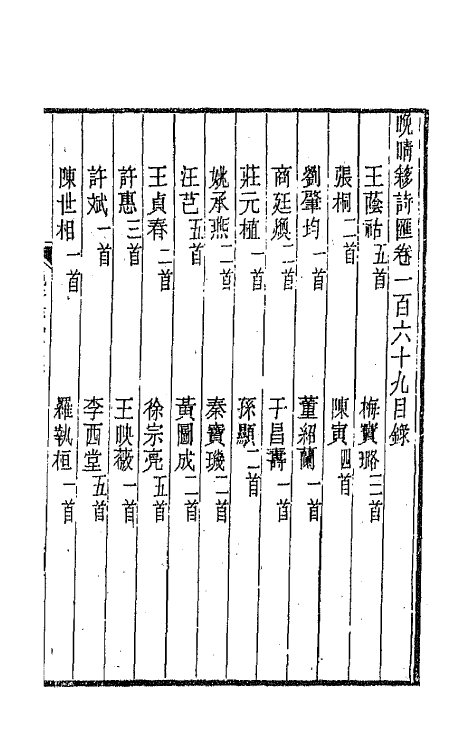 晚晴簃詩匯卷一百六十九目錄
王蔭祜五首 梅寶璐三首
張桐二首 陳寅四首
劉肇均一首 董紹蘭一首
商廷煥二首 于昌壽一首
莊元植一首 孫顯二首
姚承燕二首 秦寶璣二首
汪芑五首 黃圖成二首
王貞春二首 徐宗亮五首
許惠三首 王映薇一首
許斌一首 李西堂五首
陳世相一首 羅執桓一首